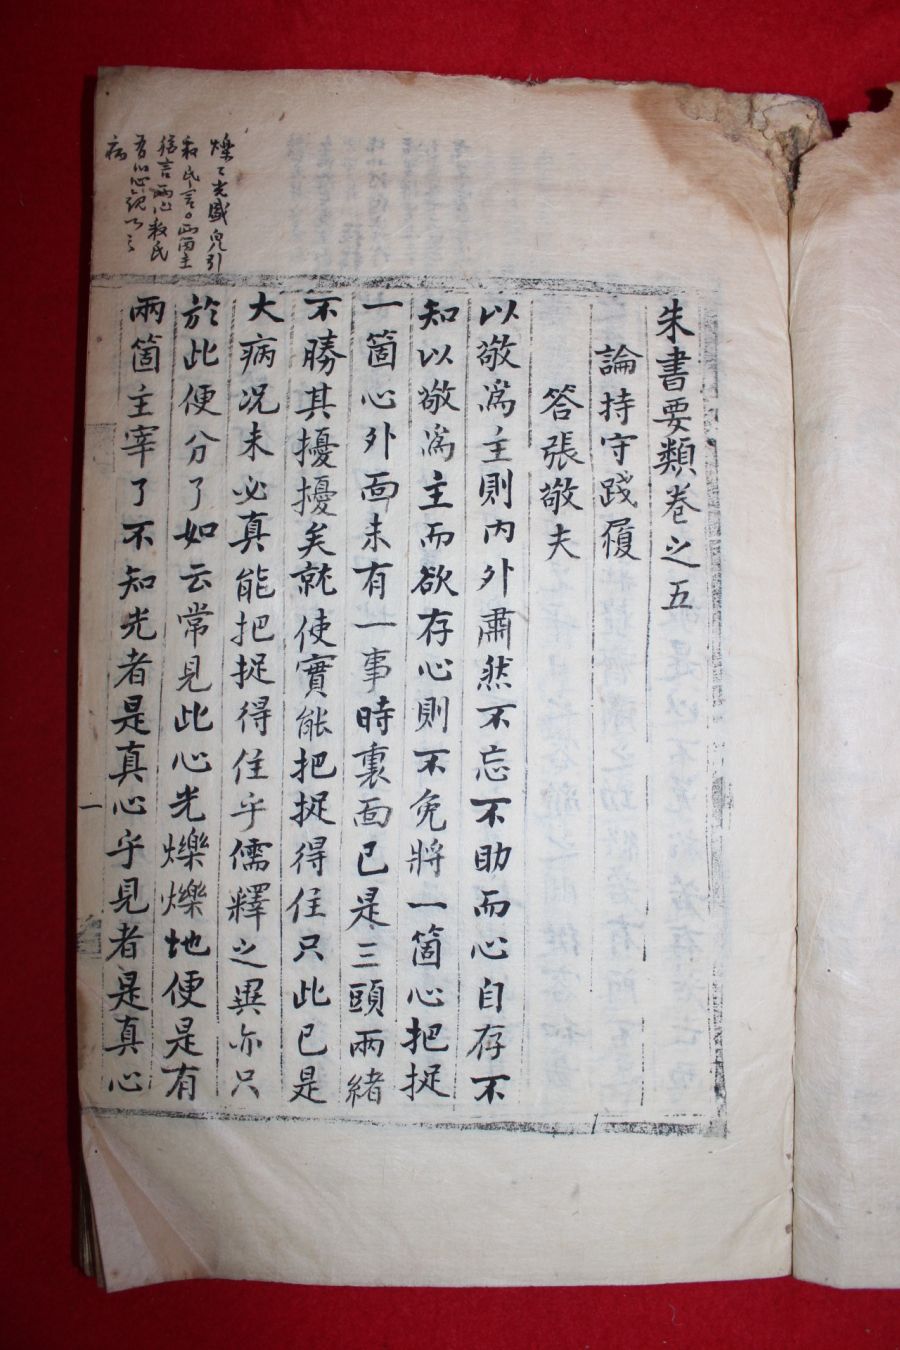 朱書要類卷之五
論持守踐履
答張敬夫
以敬爲主則內外肅然不忘不助而心自存不
知以敬爲主而欲存心則不免將一箇心把捉
一箇心外面未有一事時裏面已是三頭兩緖
不勝其擾擾矣就使實能把捉得住只此已是
大病况未必真能把捉得住乎儒釋之異亦只
於此便分了如云常見此心光爍爍地便是有
兩箇主宰了不知光者是真心乎見者是真心
爍〻光盛皃引
釈氏言
言兩心釈氏
心
病
一